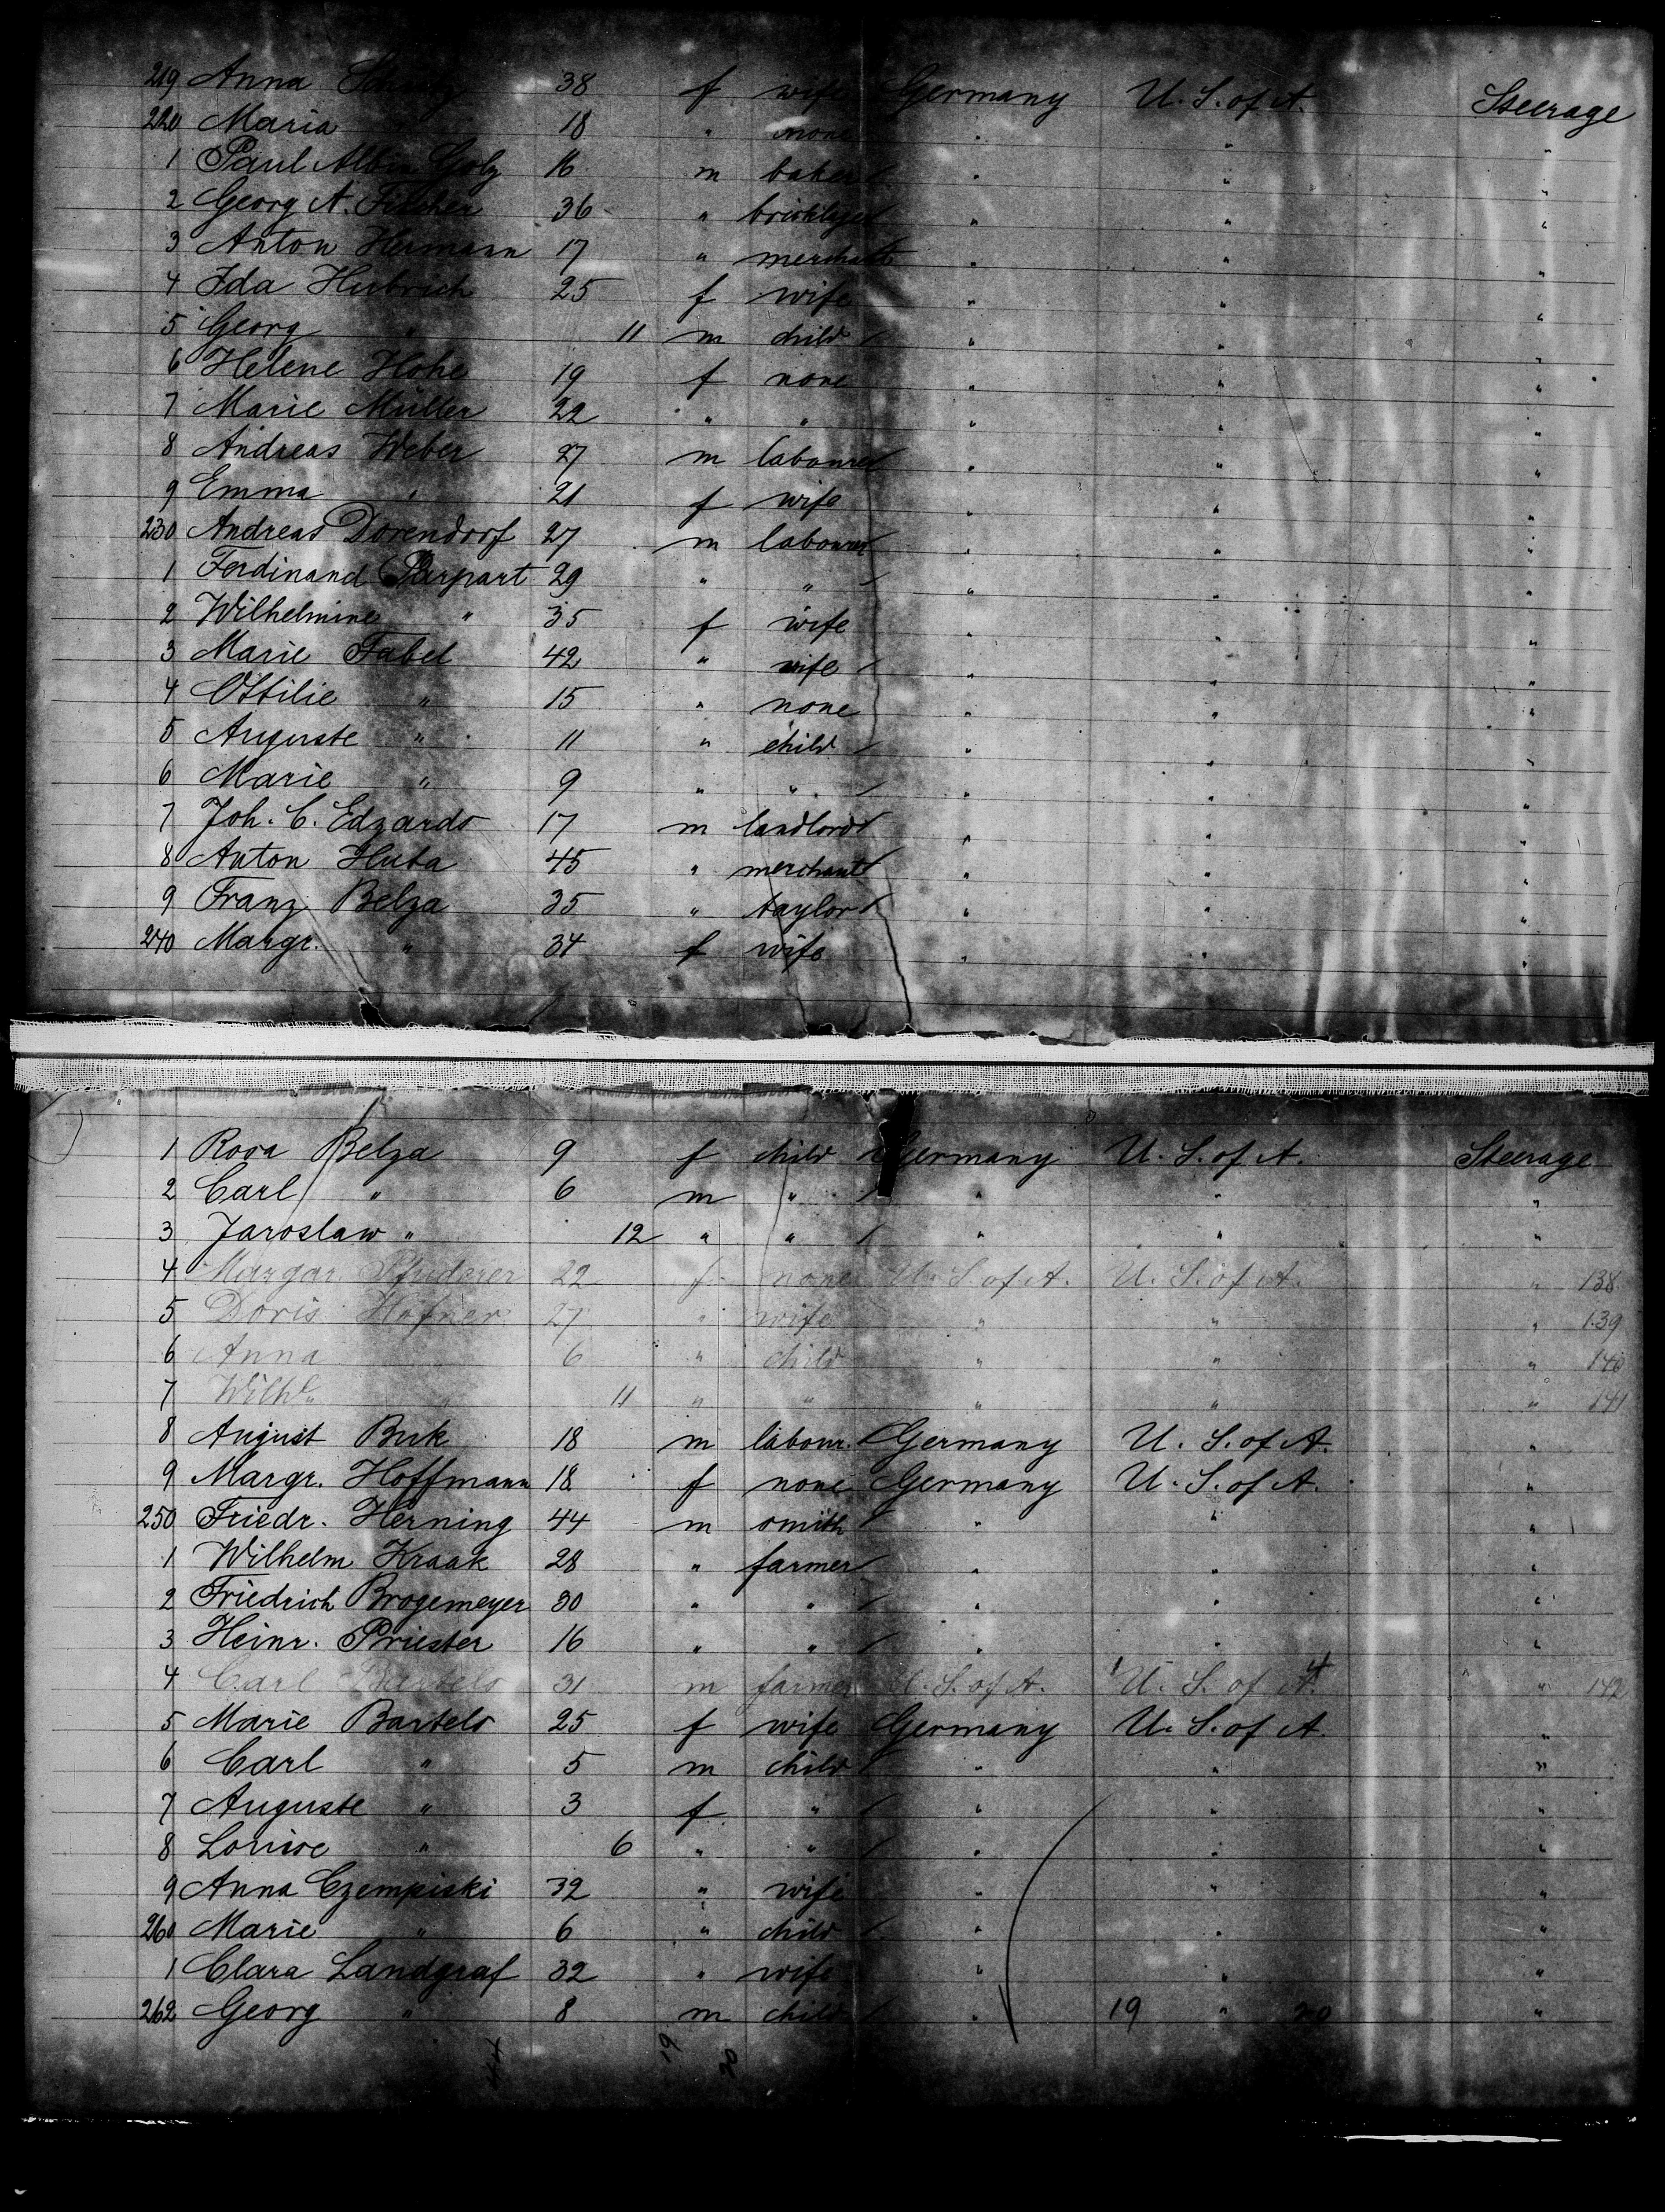 219 Anna 38 f wife Germany U. S. of A. Steerage
220 Maria 18 " none " " "
1 Paul Albin Golz 16 m baker " " "
2 Georg A. Fischer 36 " bricklayer " " "
3 Anton Hermann 17 " merchant " " "
4 Ida Hubrich 25 f wife " " "
5 Georg " 11 m child " " "
6 Helene Hohe 19 f none " " "
7 Marie Müller 22 " " " " "
8 Andreas Weber 27 m labourer " " "
9 Emma " 21 f wife " " "
230 Andreas Dorendorf 27 m labourer " " "
1 Ferdinand Parpart 29 " " " " "
2 Wilhelmine " 35 f wife " " "
3 Marie Fabel 42 " wife " " "
4 Ottilie " 15 " none " " "
5 Auguste " 11 " child " " "
6 Marie " 9 " " " " "
7 Joh. C. Edzards 17 m landlord " " "
8 Anton Huba 45 " merchant " " "
9 Franz Belza 35 " taylor " " "
240 Margr. " 34 f wife " " "
1 Rosa Belza 9 f child Germany U. S. of A. Steerage
2 Carl " 6 m " " " "
3 Jaroslaw " 12 " " " " "
4 Margar. Pfuderer 22 f none U. S. of A. U. S. of A. " 138
5 Doris Hafner 27 " wife " " " 139
6 Anna " 6 " child " " " 140
7 Wilhe " 11 " " " " " 141
8 August Buk 18 m labour. Germany U. S. of A. "
9 Margr. Hoffmann 18 f none Germany U. S. of A. "
250 Friedr. Herning 44 m smith " " "
1 Wilhelm Kraak 28 " farmer " " "
2 Friedrich Brogemeyer 30 " " " " "
3 Heinr. Priester 16 " " " " "
4 Carl Bartels 31 m farmer U. S. of A. U. S. of A. " 142
5 Marie Bartels 25 f wife Germany U. S. of A. "
6 Carl " 5 m child " " "
7 Auguste " 3 f " " " "
8 Louise " 6 " " " " "
9 Anna Czempiski 32 " wife " " "
260 Marie " 6 " child " " "
1 Clara Landgraf 32 " wife " " "
262 Georg " 8 m child " 19 " 20 "
44 19 20